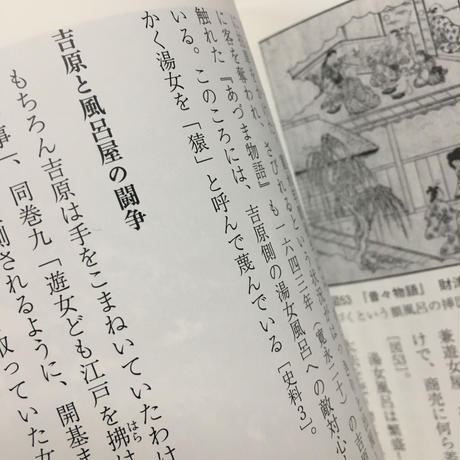 に客を奪われ
さびれるという状況が
触れた『あづま物語』も一六四三年（寛永二十）の吉
いる。このころには、吉原側の湯女風呂への敵対心
かく湯女を「猿」と呼んで蔑んでいる［史料3］。
吉原と風呂屋の闘争
もちろん吉原は手をこまねいていたわけ
事」、同巻九「遊女ども江戸を払は
測されるように、開基ま
取っていた女
253 『昔々物語』 財津
づくという額風呂の挿図
兼遊女屋
けで、商売に何ら差
［図53］。
湯女風呂は繁盛し